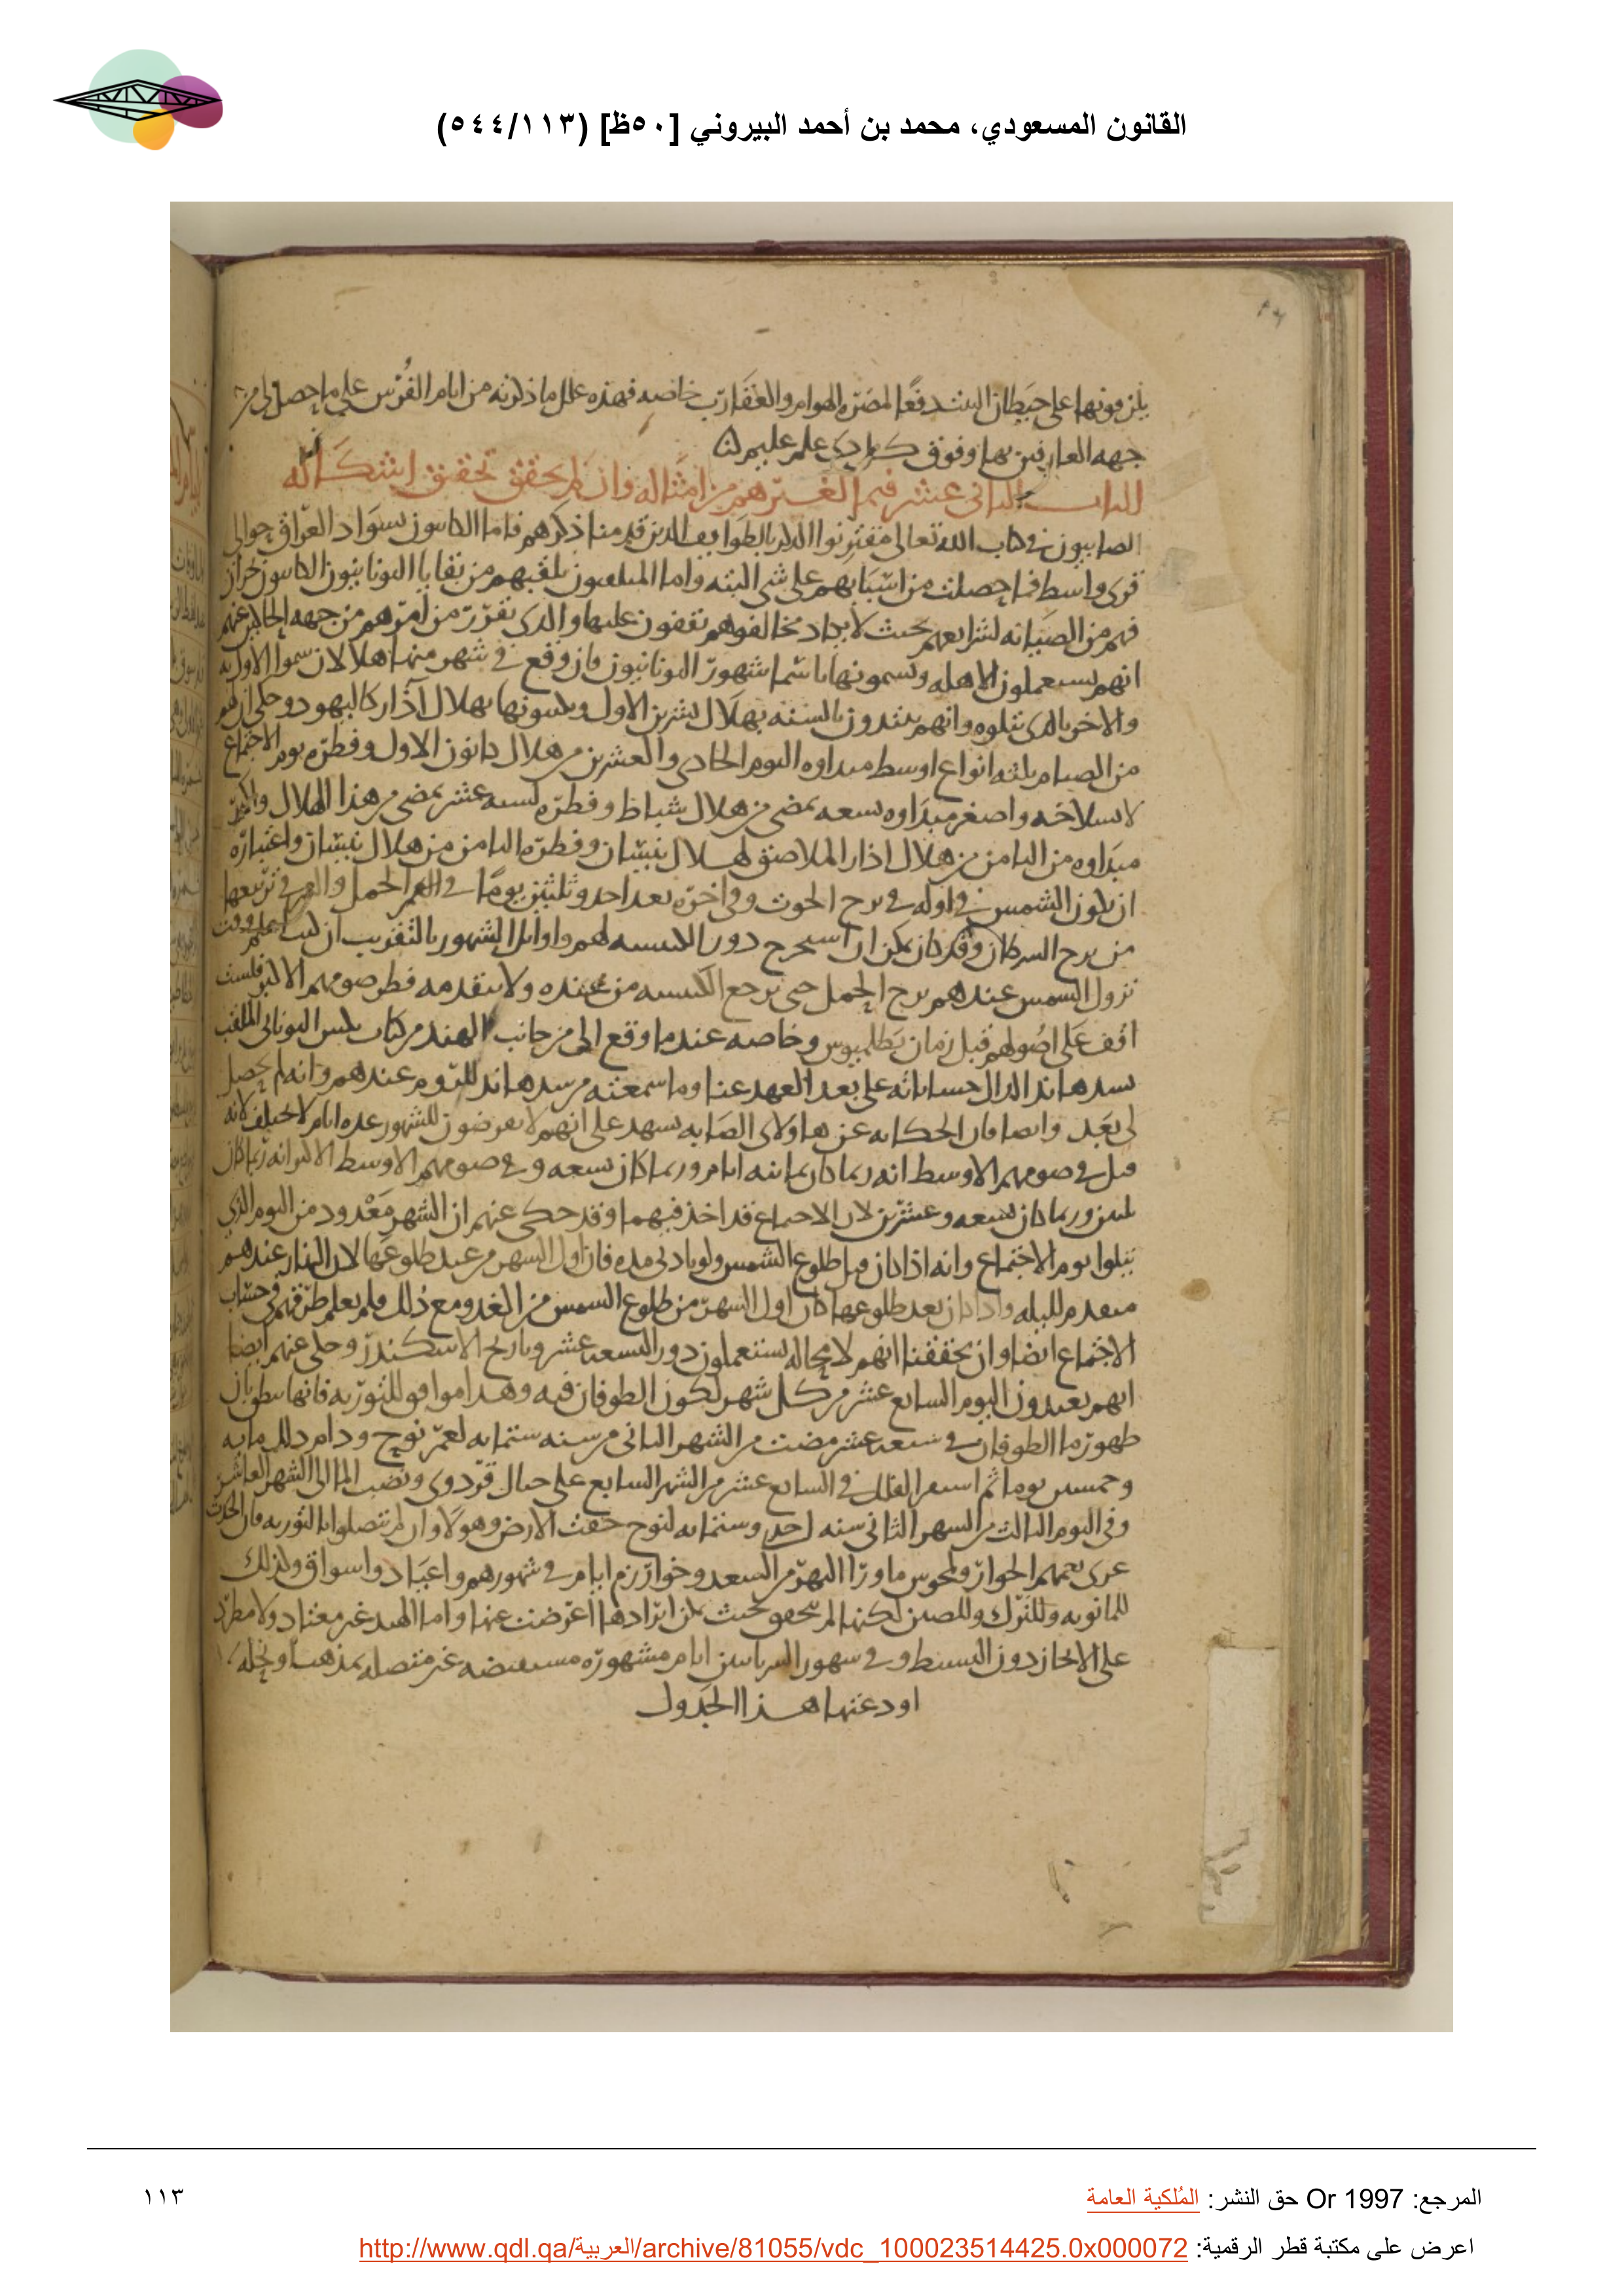 القانون المسعودي، محمد بن أحمد البيروني [٥٠ظ] (٥٤٤/١١٣)
يلزقونها على حيطان البيت دفعًا لمضره الهوام والعقارب خاصه فهذه علل ما ذكرته من ايام الفُرس على ما حصل لى من
جهه العارفين بها وفوق كل ذى علم عليم
الباب الثانى عشر فيما لغيرهم من امثاله وان لم يحقق تحقيق اشكاله
الصابيون فى كتاب الله تعالى مقترنوا الذكر بالطوايف الذين قدمنا ذكرهم فاما الكاينون بسواد العراق حوالى
قرى واسط فما حصلت من اسبابهم على شى البته واما الملقبون بلقبهم من بقايا اليونانيون الكاينون بحران
فهم من الصيانه لشرايعهم بحيث لا يكاد مخالفوهم يقفون عليها والذى تقرر من امرهم من جهه الحاكين عنهم
انهم يستعملون الاهله ويسمونها باسما شهور اليونانيون فان وقع فى شهر منها هلالان سموا الاول به
والاخر بالذى يتلوه وانهم يبتدون بالسنه بهلال تشرين الاول ويكبسونها بهلال آذار كاليهود وحكى ان لهم
من الصيام ثلثه انواع اوسط مبداوه اليوم الحادى والعشرين من هلال كانون الاول وفطره يوم الاجتماع
لانسلاخه واصغر مبداوه لسعه تمضى من هلال شباط وفطره لسته عشر تمضى من هذا الهلال واكبر
مبداوه من الثامن من هلال اذار الملاصق لهلال نيسان وفطره الثامن من هلال نيسان واعتباره
ان يكون الشمس فى اوله فى برج الحوت وفى اخره بعد احد وثلثين يومًا فى الحمل والقمر فى تربيعها
من برج السرطان وقد كان يمكن ان استخرج دور الكبيسه لهم واوايل الشهور بالتقريب ان لست اعلم وقت
نزول الشمس عندهم برج الحمل حتى يرجع الكبيسه من عنده ولا يتقدمه فطر صومهم الاكبر فلست
اقف على اصولهم قبل زمان بطلميوس وخاصه عند ما وقع الى من جانب الهند من كتاب بلس اليونانى الملقب
سدهاند الدال حساباته على بعد العهد عنا وما سمعته من سدهاند للروم عندهم وانه لم يحصل
لى بعد وايضا فان الحكايه عن هاولاى الصابه يشهد على انهم لا يفرضون للشهور عده ايام لا تختلف لانه
قيل فى صومهم الاوسط انه ربما كان ثمانيه ايام وربما كان تسعه وفى صومهم الاوسط الاكبر انه ربما كان
ثلثين وربما كان تسعه وعشرين لان الاجتماع قد اخذ فيهما وقد حكى عنهم ان الشهر معْدود من اليوم الذى
يتلوا يوم الاجتماع وانه اذا كان قبل طلوع الشمس ولو بادنى مده فان اول الشهر من عند طلوعها لان النهار عندهم
متقدم لليله واذا كان بعد طلوعها كان اول الشهر من طلوع الشمس من الغد ومع ذلك فلم يعلم طرقهم فى حساب
الاجتماع ايضا وان تحققنا انهم لا محاله يستعملون دور التسعه عشر وتاريخ الاسكندر وحكى عنهم ايضا
انهم يعيدون اليوم السابع عشر من كل شهر لكون الطوفان فيه وهذا موافق للتوريه فانها تنطق بان
ظهور ما الطوفان فى سبعه عشر مضت من الشهر الثانى من سنه ستمايه لعمر نوح ودام ذلك مايه
وخمسين يوما ثم استقر الفلك فى السابع عشر من الشهر السابع على جبال قردوى ونضب الما الى الشهر العاشر
وفى اليوم الثالث من الشهر الثانى سنه احدى وستمايه لنوح جفت الارض وهولا وان لم يتصلوا بالتوريه فان الحديث
عرى يعمهم الجوار ولمجوس ما ورا النهر من السغد وخوارزم ايام فى شهورهم واعياد واسواق وكذلك
للمانويه وللترك وللصين لكنها لم تتحقق بحيث يمكن ايرادها اعرضت عنها واما الهند غير معتاد ولا مطرد
على الايجاز دون البسيط وفى شهور السريانيين ايام مشهوره مستفيضه غير متصله بمذهب ونحله
اودعتها هذا الجدول
المرجع: Or 1997 حق النشر: المُلكية العامة
١١٣
اعرض على مكتبة قطر الرقمية: http://www.qdl.qa/العربية/archive/81055/vdc_100023514425.0x000072